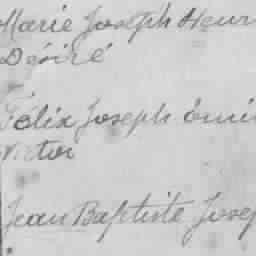 Marie Joseph Henri
Désiré
Félix Joseph Émile
Victor
Jean Baptiste Joseph